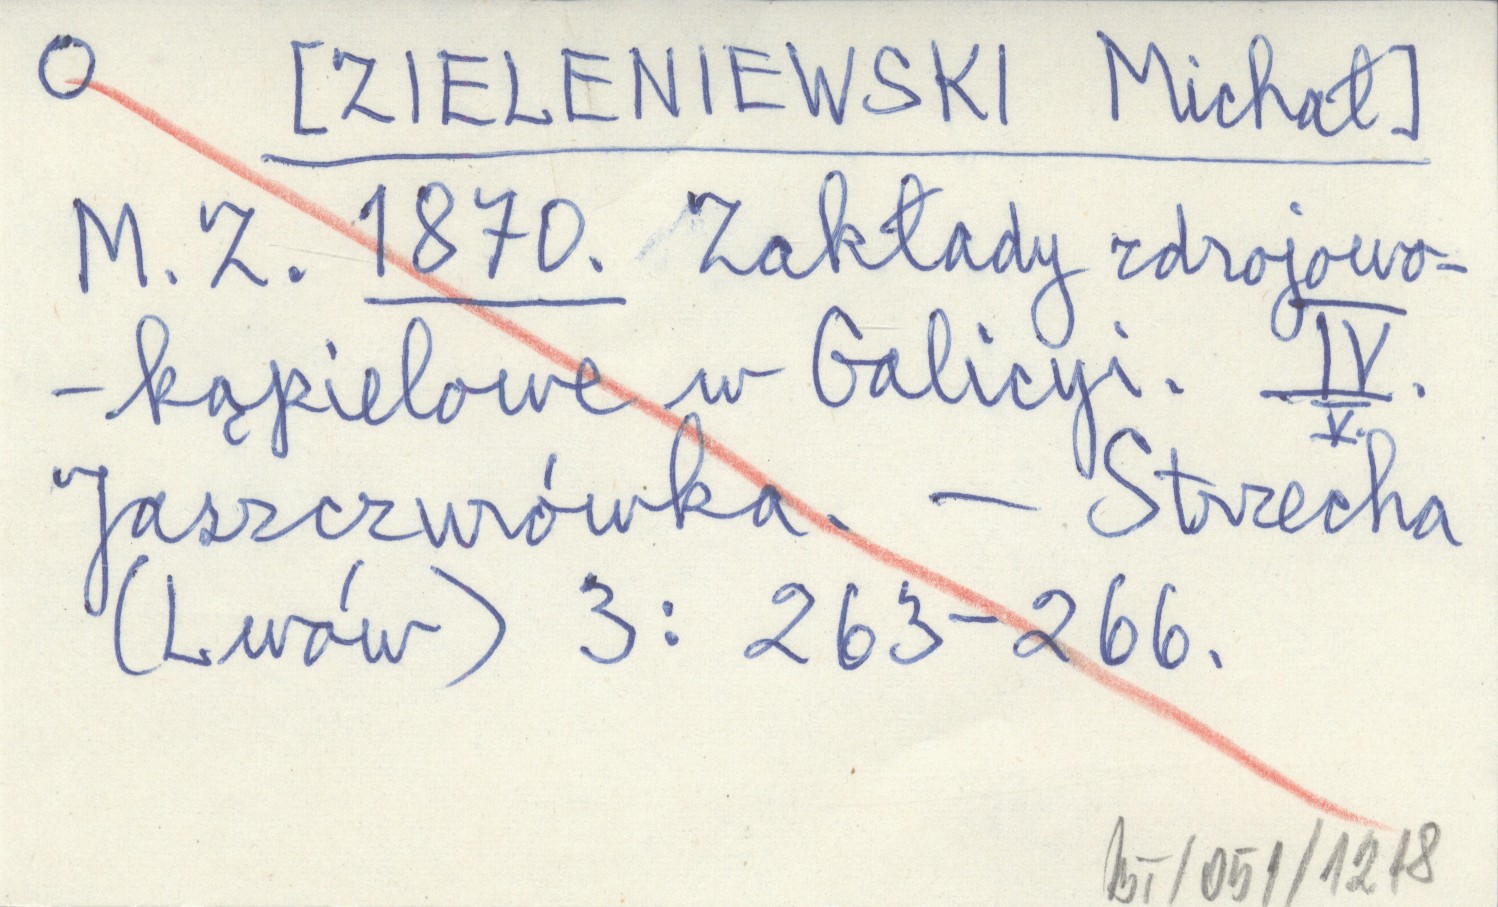 O [ZIELENIEWSKI Michał]
M. Z. 1870. Zakłady zdrojowo-
-kąpielowe w Galicyi. IV.
V.
Jaszczurówka. — Strzecha
(Lwów) 3: 263-266.
/051/1218